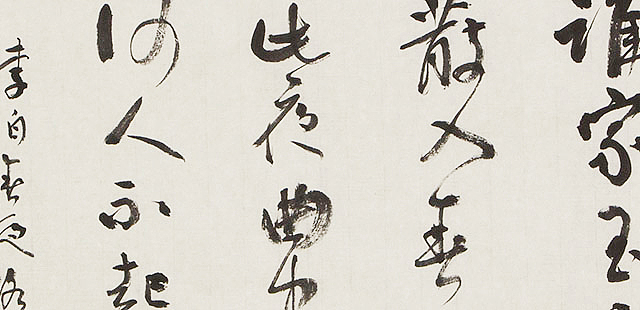 誰家玉
散入春
此夜曲中
何人不起
李白春夜洛